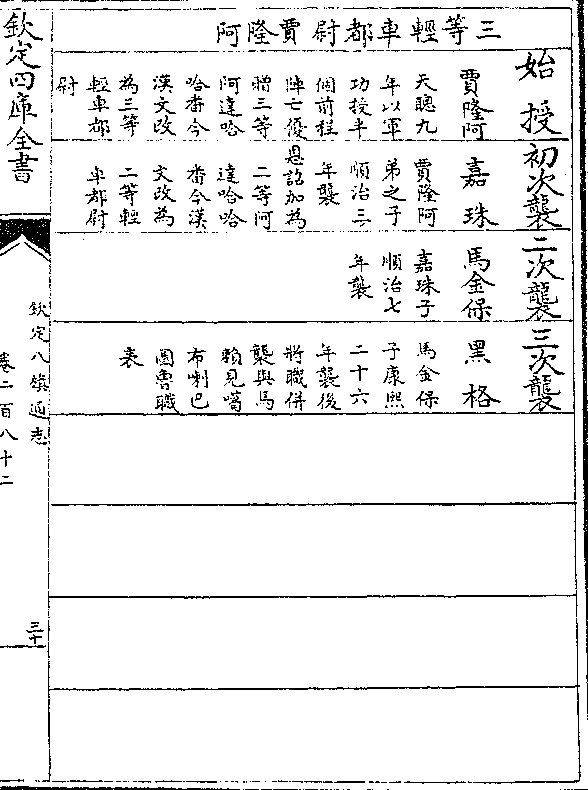 三等輕車都尉賈隆阿
始授
賈隆阿
天聰九
年以軍
功授半
個前程
陣亡優
贈三等
阿達哈
哈番今
漢文改
為三等
輕車都
尉
初次襲
嘉珠
賈隆阿
弟之子
順治三
年襲
恩詔加為
二等阿
達哈哈
番今漢
文改為
二等輕
車都尉
二次襲
馬金保
嘉珠子
順治七
年襲
三次襲
黑格
馬金保
子康熙
二十六
年襲後
將職併
襲與馬
賴見噶
布喇巴
圖魯職
表
欽定四庫全書
欽定八旗通志
卷二百八十二
三十